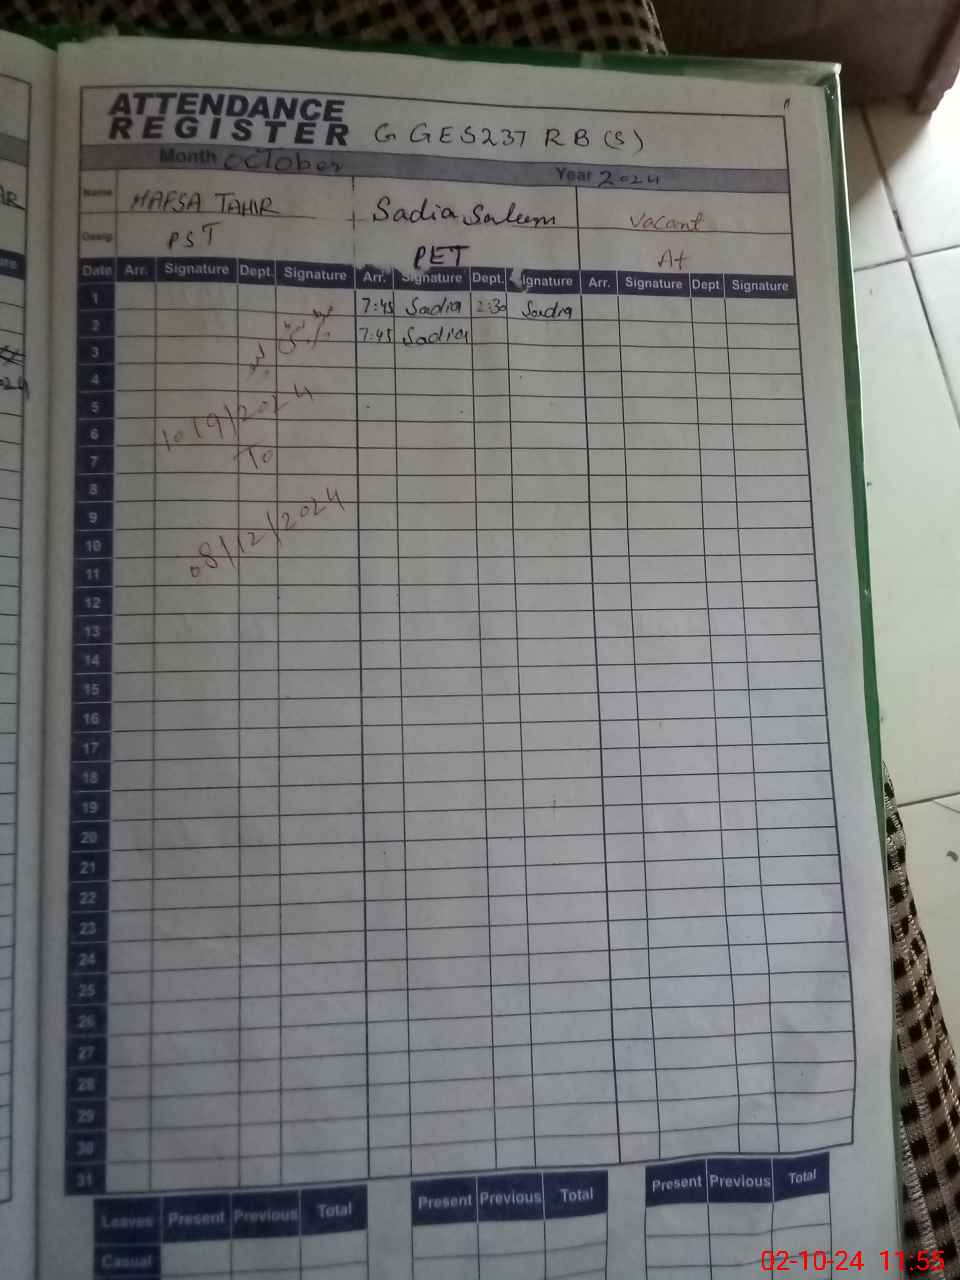 ATTENDANCE
REGISTER G GES 237 R B (S)
Month October Year 2024
Name HAFSA TAHIR Sadia Saleem Vacant
Desig. PST PET At
Date Arr. Signature Dept. Signature Arr. Signature Dept. Signature Arr. Signature Dept. Signature
1 7:45 Sadia 2:30 Sadia
2 7:45 Sadia
3
4
5
6 10/9/2024
7 To
8
9
10 08/12/2024
11
12
13
14
15
16
17
18
19
20
21
22
23
24
25
26
27
28
29
30
31
Leaves Present Previous Total Present Previous Total Present Previous Total
Casual
02-10-24 11:55